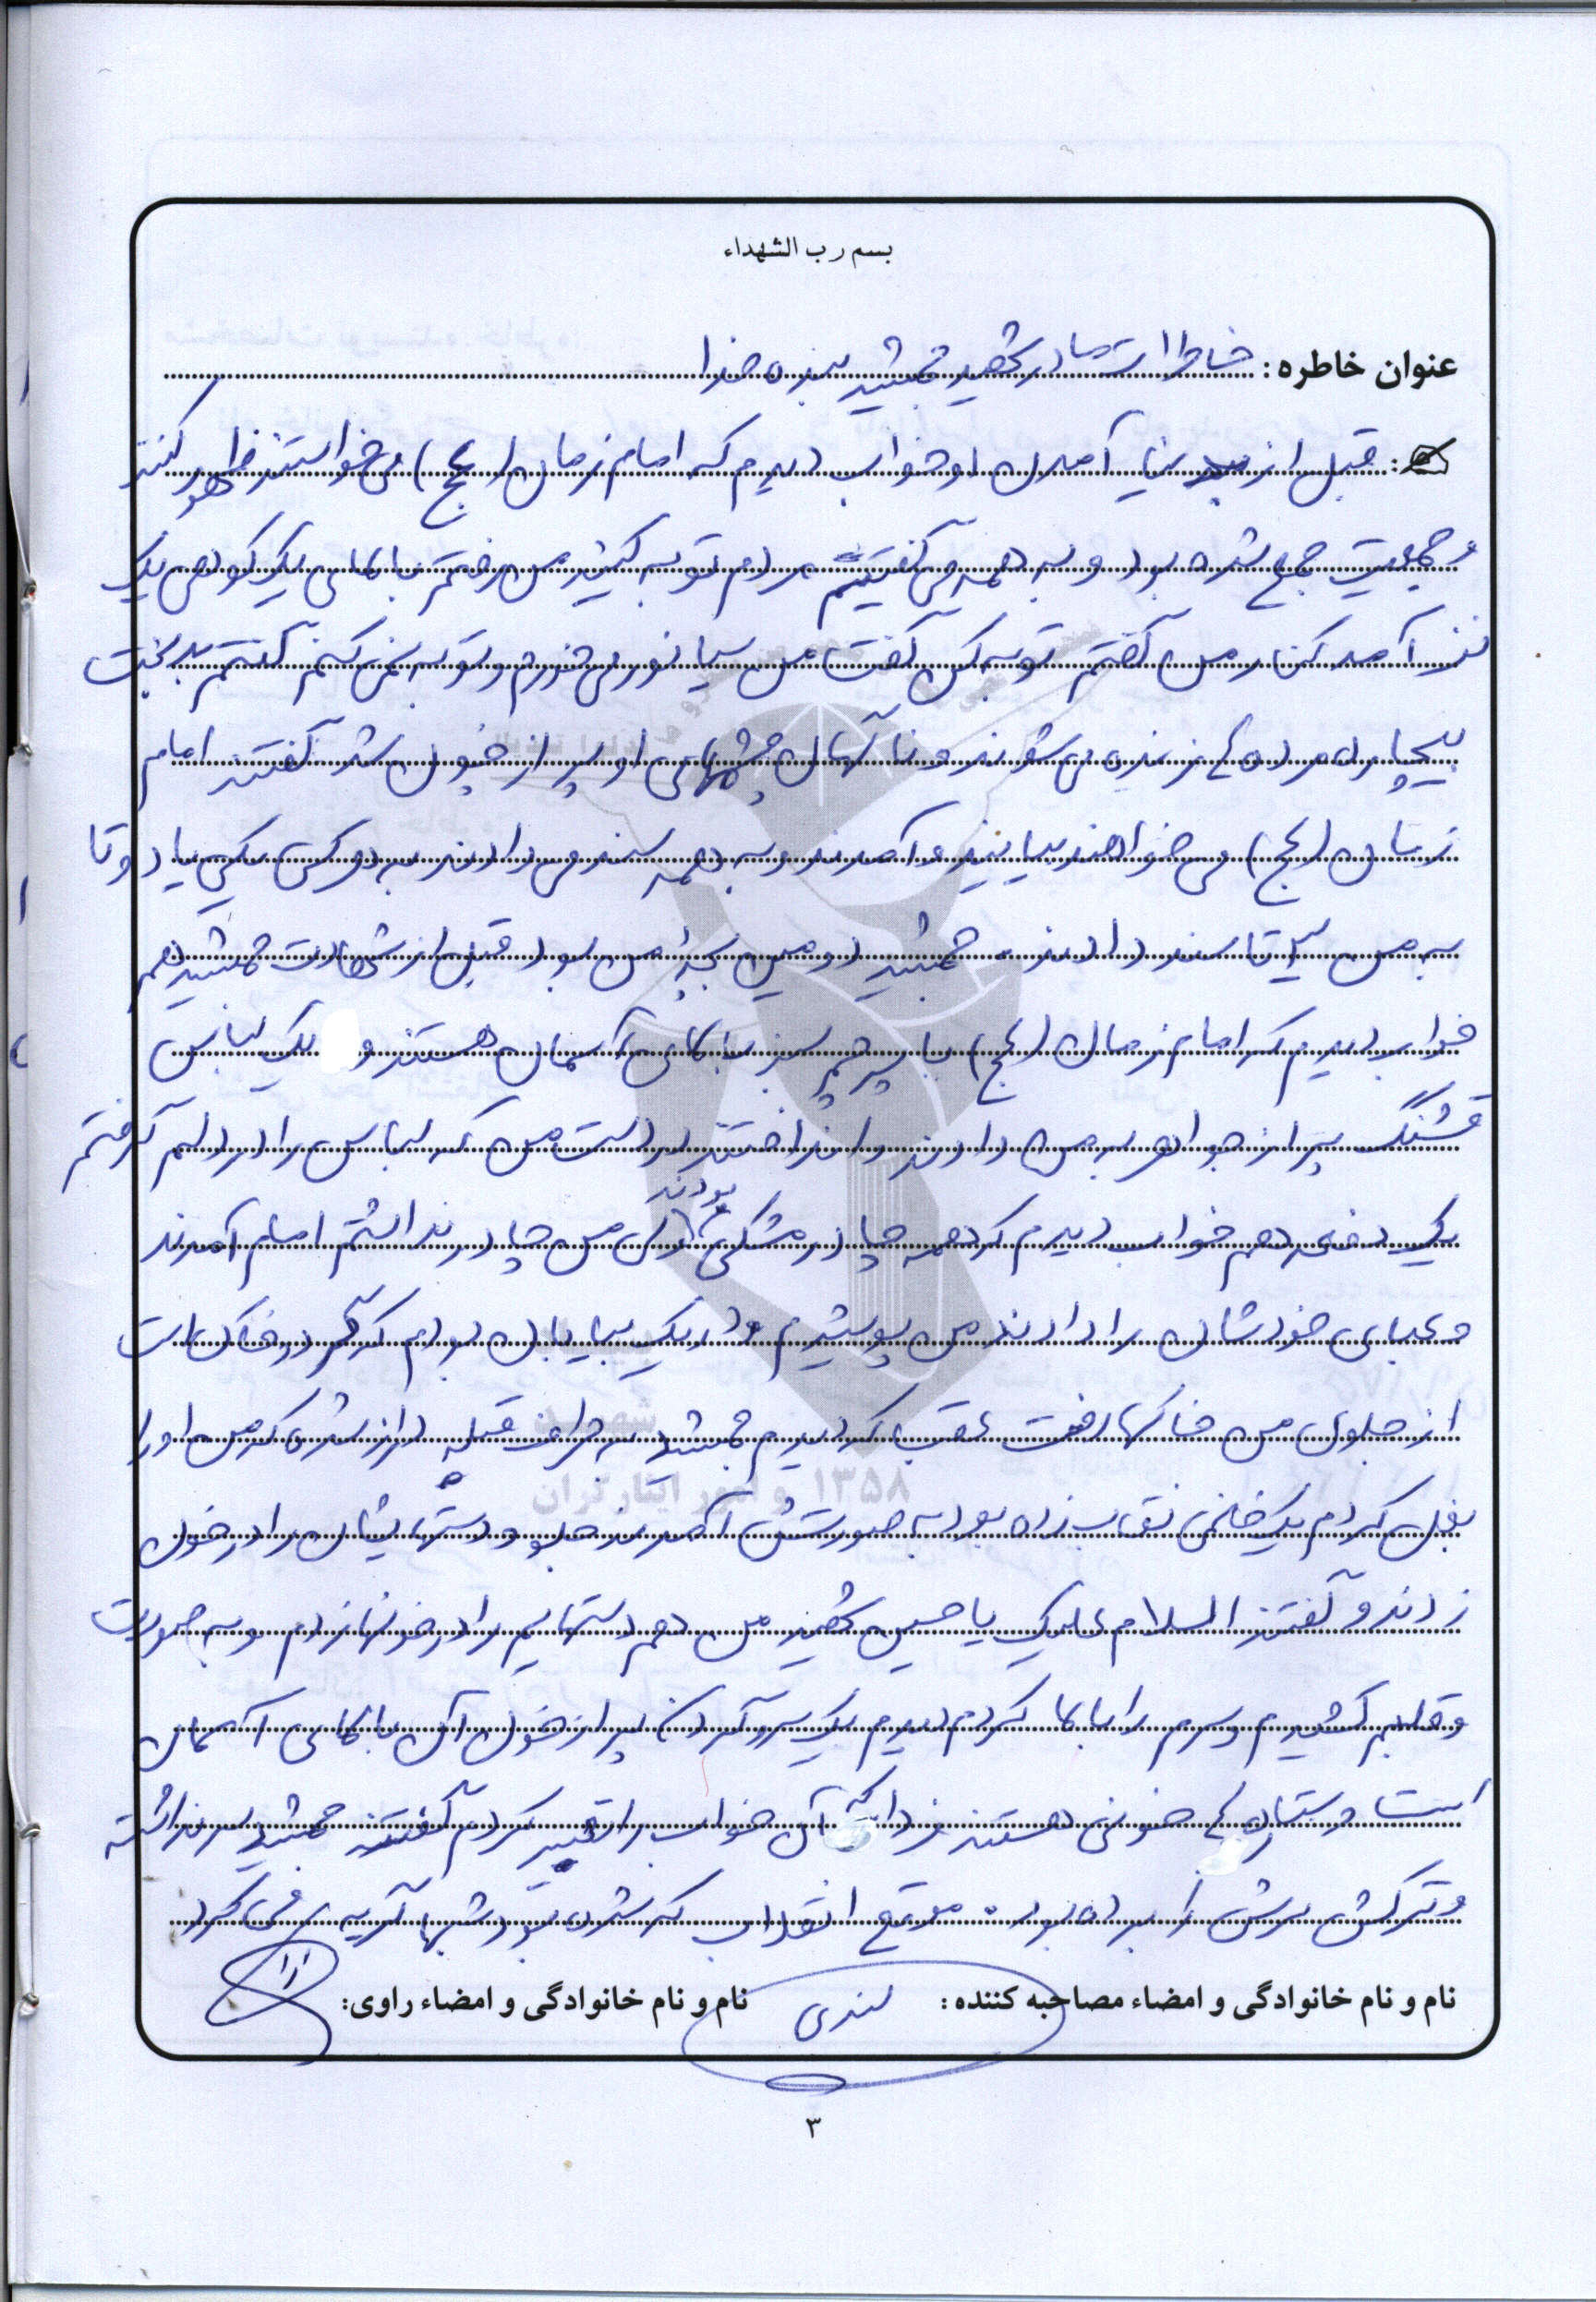 بسم رب الشهداء
عنوان خاطره: خاطرات مادر شهید جمشید بنده خدا
قبل از بدنیا آمدن او خواب دیدم که امام زمان (عج) می خواستند ظهور کنند
و جمعیت جمع شده بود و به همه می گفتیم مردم توبه کنید من رفتم بالای یک کوهی یک
نفر آمد کنار من گفتم توبه کن گفت من سیانور می خورم و توبه نمی کنم گفتم بدبخت
بیچاره مرده ها زنده می شوند و ناگهان چشمهای او پر از خون شد گفتند امام
زمان (عج) می خواهند بیایند و آمدند و به همه سند می دادند به هر کس یکی یا دو تا
به من سه تا سند دادند. جمشید دومین بچه من بود قبل از شهادت جمشید هم
خواب دیدم که امام زمان (عج) با پرچم سبز بالای آسمان هستند و یک لباس
قشنگ پر از جواهر به من دادند و انداختند در دست من که لباس را در دلم گرفتم
یک دفعه هم خواب دیدم که همه چادر مشکی بودند ولی من چادر نداشتم امام آمدند
و عبای خودشان را دادند من پوشیدم و در یک بیابان بودم که گرد و خاک است
از جلوی من خاکها رفت عقب که دیدم جمشید به طرف قبله دراز شده که من او را
بغل کردم یک خانمی نقاب زده بود به صورتش آمدند جلو و دستهایشان را در خون
زدند و گفتند السلام علیک یا حسین شهید من هم دستهایم را در خونها زدم و به صورت
و قلبم کشیدم و سرم را بالا کردم دیدم یک سر و گردن پر از خون آن بالای آسمان
است و ستاره ها خونی هستند فردا که آن خواب را تعبیر کردم گفتند جمشید سر نداشته
و ترکش سرش را برده بود. موقع انقلاب که شده بود شبها گریه می کرد
نام و نام خانوادگی و امضاء مصاحبه کننده: نام و نام خانوادگی و امضاء راوی:
۳